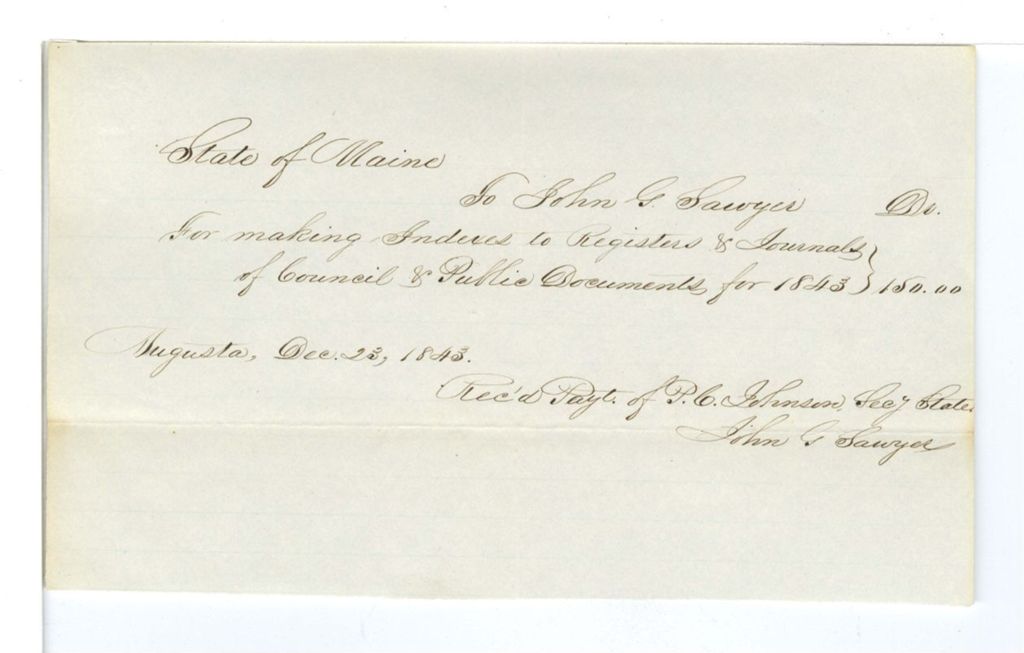 State of Maine
To John G. Sawyer Dr.
For making Indexes to Registers & Journals
of Council & Public Documents, for 1843 } 150.00
Augusta, Dec. 23, 1843.
Rec'd Payt. of P.C. Johnson, Sec'y State.
John G Sawyer